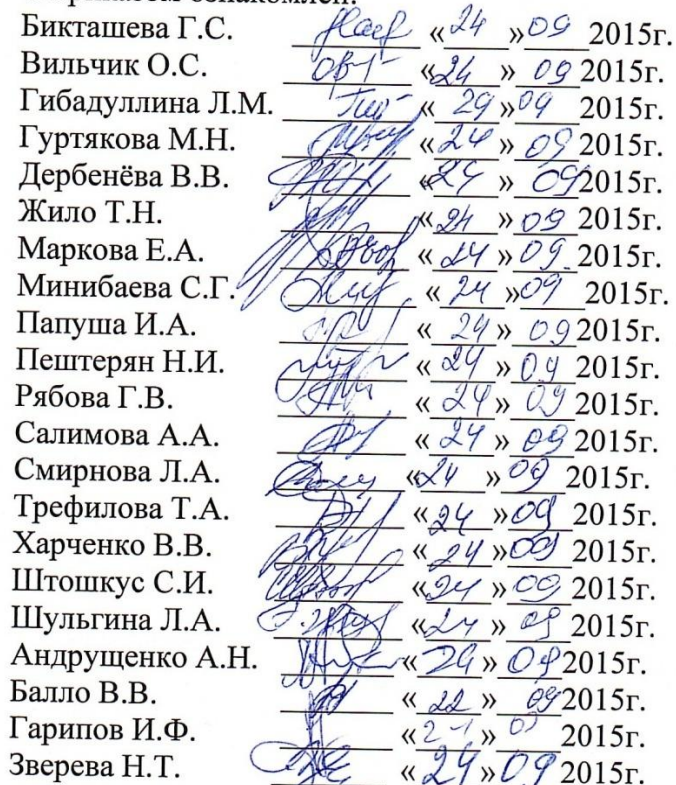 Бикташева Г.С. «24» 09 2015г.
Вильчик О.С. «24» 09 2015г.
Гибадуллина Л.М. «29» 09 2015г.
Гуртякова М.Н. «24» 09 2015г.
Дербенёва В.В. «24» 09 2015г.
Жило Т.Н. «24» 09 2015г.
Маркова Е.А. «24» 09. 2015г.
Минибаева С.Г. «24» 09 2015г.
Папуша И.А. «24» 09 2015г.
Пештерян Н.И. «24» 09 2015г.
Рябова Г.В. «24» 09 2015г.
Салимова А.А. «24» 09 2015г.
Смирнова Л.А. «24» 09 2015г.
Трефилова Т.А. «24» 09 2015г.
Харченко В.В. «24» 09 2015г.
Штошкус С.И. «24» 09 2015г.
Шульгина Л.А. «24» 09 2015г.
Андрущенко А.Н. «24» 09 2015г.
Балло В.В. «22» 09 2015г.
Гарипов И.Ф. 2015г.
Зверева Н.Т. «24» 09 2015г.